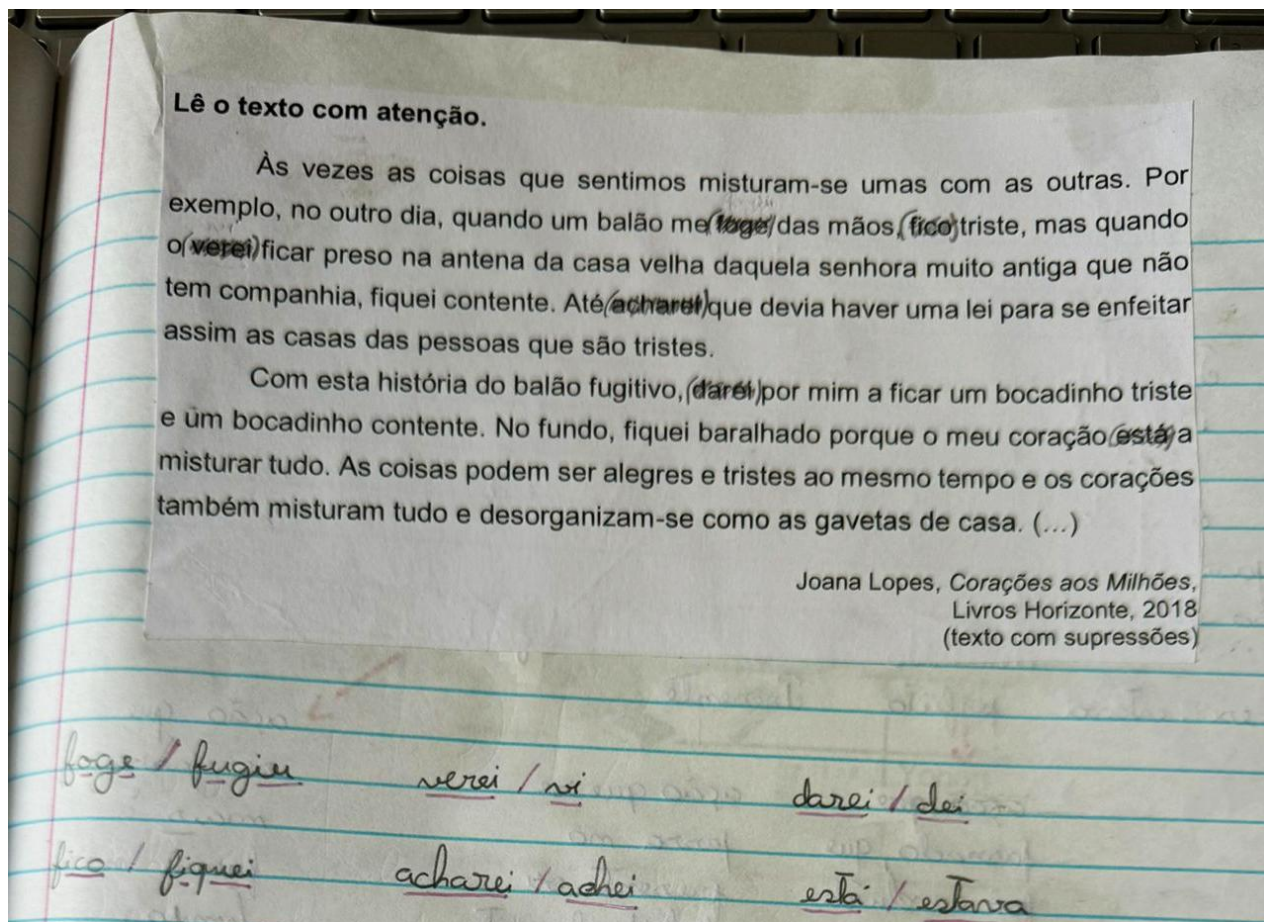 Lê o texto com atenção.
Às vezes as coisas que sentimos misturam-se umas com as outras. Por
exemplo, no outro dia, quando um balão me (foge) das mãos, (fico) triste, mas quando
o (verei) ficar preso na antena da casa velha daquela senhora muito antiga que não
tem companhia, fiquei contente. Até (acharei) que devia haver uma lei para se enfeitar
assim as casas das pessoas que são tristes.
Com esta história do balão fugitivo, (darei) por mim a ficar um bocadinho triste
e um bocadinho contente. No fundo, fiquei baralhado porque o meu coração (está) a
misturar tudo. As coisas podem ser alegres e tristes ao mesmo tempo e os corações
também misturam tudo e desorganizam-se como as gavetas de casa. (...)
Joana Lopes, Corações aos Milhões,
Livros Horizonte, 2018
(texto com supressões)
foge / fugiu verei / vi darei / dei
fico / fiquei acharei / achei está / estava